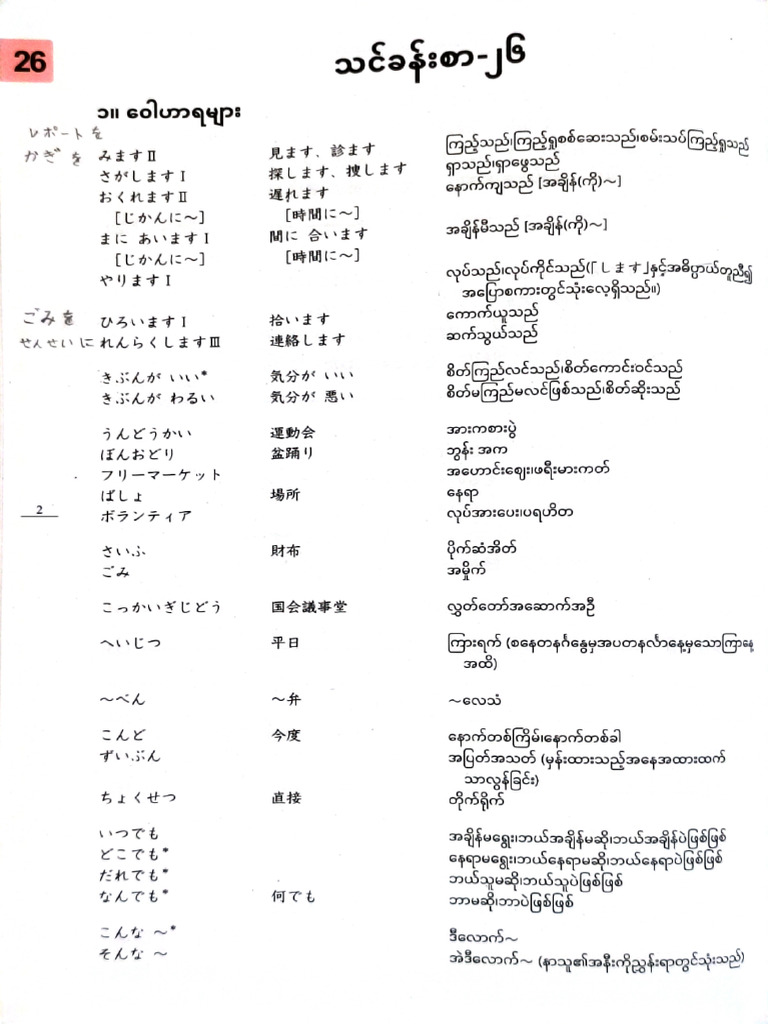 26
သင်ခန်းစာ-၂၆
၁။ ဝေါဟာရများ
レポートを
かぎを みますⅡ 見ます、診ます ကြည့်သည်၊ကြည့်ရှုစစ်ဆေးသည်၊စမ်းသပ်ကြည့်ရှုသည်
さがしますⅠ 探します、捜します ရှာသည်၊ရှာဖွေသည်
おくれますⅡ 遅れます နောက်ကျသည် [အချိန်(ကို)~]
[じかんに～] [時間に～]
まに あいますⅠ 間に 合います အချိန်မီသည် [အချိန်(ကို)~]
[じかんに～] [時間に～]
やりますⅠ လုပ်သည်၊လုပ်ကိုင်သည်(「します」နှင့်အဓိပ္ပာယ်တူညီ၍
အပြောစကားတွင်သုံးလေ့ရှိသည်။)
ごみを ひろいますⅠ 拾います ကောက်ယူသည်
せんせいに れんらくしますⅢ 連絡します ဆက်သွယ်သည်
きぶんが いい* 気分が いい စိတ်ကြည်လင်သည်၊စိတ်ကောင်းဝင်သည်
きぶんが わるい 気分が 悪い စိတ်မကြည်မလင်ဖြစ်သည်၊စိတ်ဆိုးသည်
うんどうかい 運動会 အားကစားပွဲ
ぼんおどり 盆踊り ဘွန်း အက
フリーマーケット အဟောင်းဈေး၊ဖရီးမားကတ်
ばしょ 場所 နေရာ
2
ボランティア လုပ်အားပေး၊ပရဟိတ
さいふ 財布 ပိုက်ဆံအိတ်
ごみ အမှိုက်
こっかいぎじどう 国会議事堂 လွှတ်တော်အဆောက်အဦ
へいじつ 平日 ကြားရက် (စနေတနင်္ဂနွေမှအပတနင်္လာနေ့မှသောကြာနေ့
အထိ)
～べん ～弁 ~လေသံ
こんど 今度 နောက်တစ်ကြိမ်၊နောက်တစ်ခါ
ずいぶん အပြတ်အသတ် (မှန်းထားသည့်အနေအထားထက်
သာလွန်ခြင်း)
ちょくせつ 直接 တိုက်ရိုက်
いつでも အချိန်မရွေး၊ဘယ်အချိန်မဆို၊ဘယ်အချိန်ပဲဖြစ်ဖြစ်
どこでも* နေရာမရွေး၊ဘယ်နေရာမဆို၊ဘယ်နေရာပဲဖြစ်ဖြစ်
だれでも* ဘယ်သူမဆို၊ဘယ်သူပဲဖြစ်ဖြစ်
なんでも* 何でも ဘာမဆို၊ဘာပဲဖြစ်ဖြစ်
こんな ～* ဒီလောက်~
そんな ～ အဲဒီလောက်~ (နာသူ၏အနီးကိုညွှန်းရာတွင်သုံးသည်)